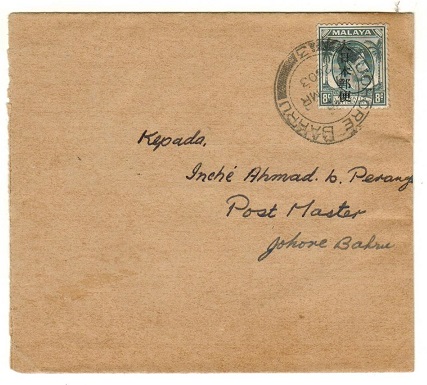 MALAYA
8c 8c
大日本郵便
JOHORE BAHRU
MR
Kepada,
Inché Ahmad. b. Perang
Post Master
Johore Bahru